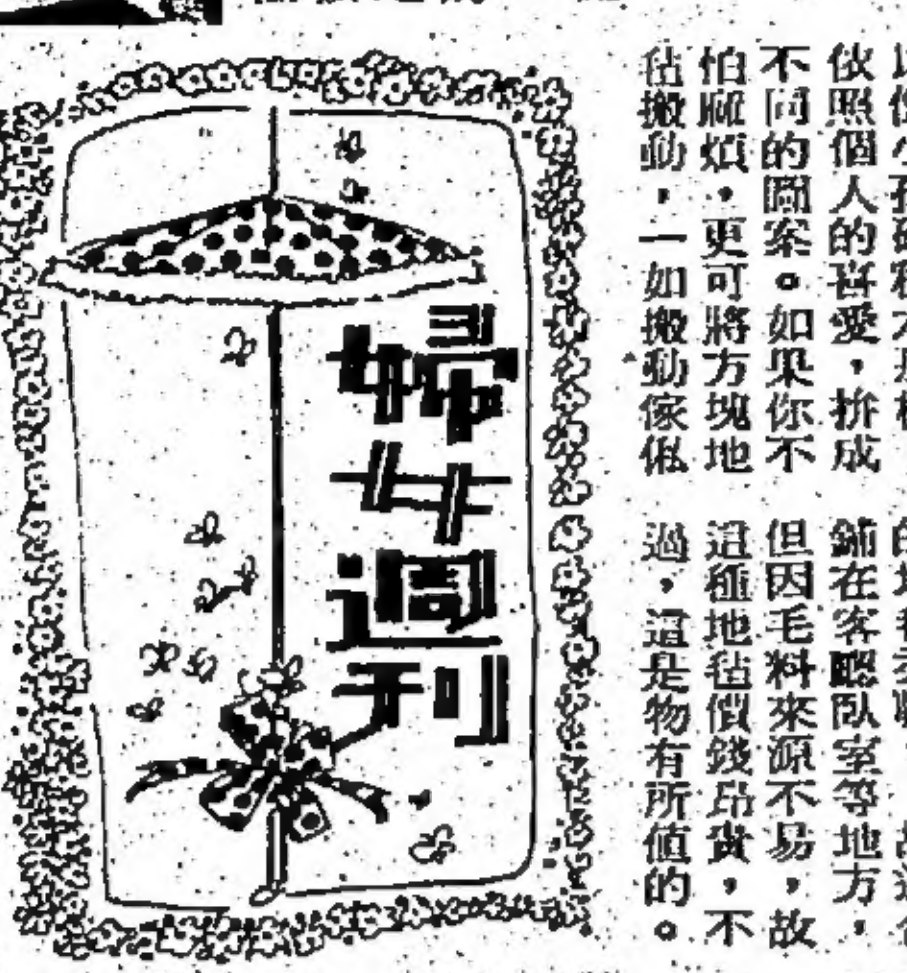 依照個人的喜愛，拚成
不同的圖案。如果你不
怕麻煩，更可將方塊地
毡搬動，一如搬動傢俬
鋪在客廳臥室等地方，
但因毛料來源不易，故
這種地毡價錢昂貴，不
過，這是物有所值的。
婦女週刊